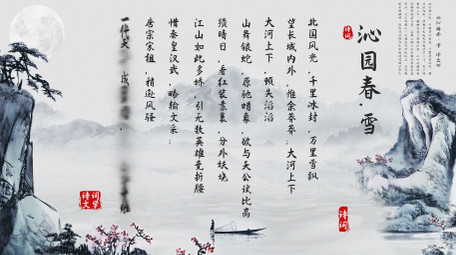 诗词
沁园春·雪
北国风光,千里冰封,万里雪飘
望长城内外,惟余莽莽;大河上下
大河上下,顿失滔滔
山舞银蛇,原驰蜡象,欲与天公试比高
须晴日,看红装素裹,分外妖娆
江山如此多娇,引无数英雄竞折腰
惜秦皇汉武,略输文采;
唐宗宋祖,稍逊风骚
一代天
诗词